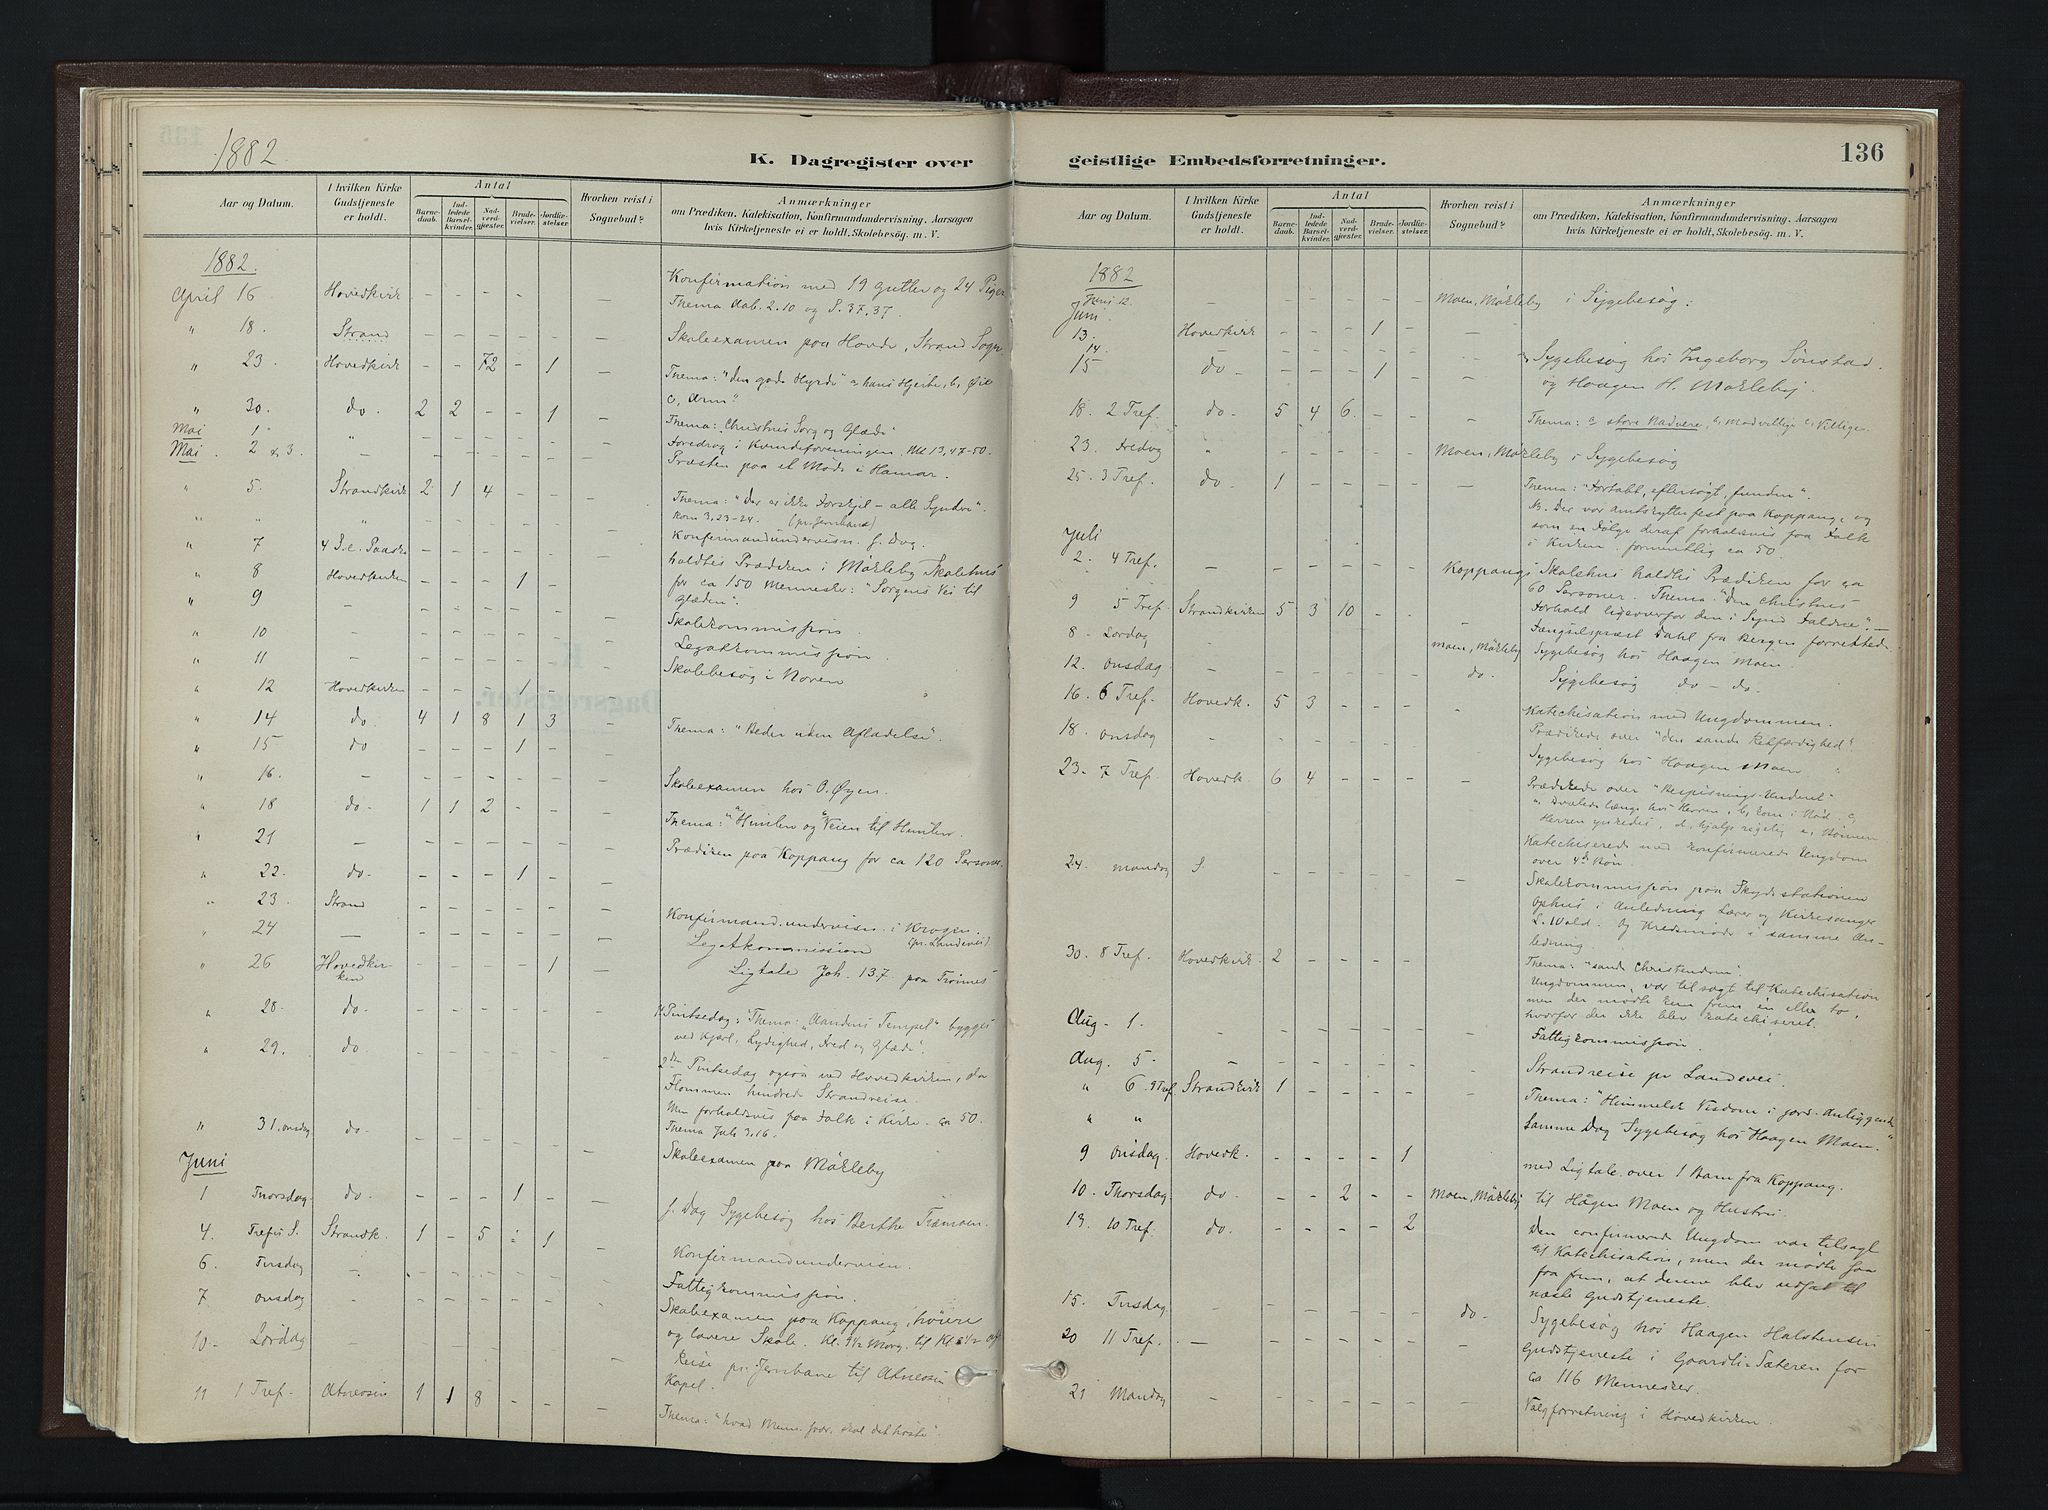 1882
K. Dagregister over
Aar og Datum.
I hvilken Kirke Gudstjeneste er holdt.
Antal
Barnedaab.
Indledede Barselkvinder.
Nadverdgjester.
Brudevielser.
Jordfæstelser
Hvorhen reist i Sognebud?
Anmærkninger
om Prædiken, Katekisation, Konfirmandundervisning, Aarsagen
hvis Kirketjeneste ei er holdt, Skolebesøg. m. V.
1882.
April 16 Hovedkirk - - - - - - Konfirmation med 19 Gutter og 24 Piger
Thema Aab. 2.10 og S. 37.37.
" 18. Strand - - - - - - Skoleexamen paa Hovde, Strand Sogn.
" 23 Hovedkirk - - 72 - 1 - Thema: "den gode Hyrde" a, hans Hjerte, b, Øie
c, Arm"
" 30. do. 2 2 - - 1 - Thema: Christnes Sorg og Glæde
Mai 1 " - - - - - - Foredrag i Kvindeforeningen, Mt 13,47-50.
Mai. 2 & 3. - - - - - - Præsten paa et Møde i Hamar.
" 5. Strandkirk 2 1 4 - - - Thema: "Der er ikke Forskjel - alle Syndere".
Rom 3,23-24. (pr. Jernbane)
" " " - - - - - Konfirmandundervisn. f. Dag.
" 7 4 S. e. Paaske - - - - - - holdtes Prædiken i Mökleby Skolehus
for ca 150 Mennesker: "Sorgens Vei til
Glæden".
" 8 Hovedkirken - - - 1 - -
" 9 - - - - - - - Skolekommission.
" 10 - - - - - - - Legatkommission.
" 11 - - - - - - - Skolebesøg i Noren
" 12 Hovedkirken - - - 1 - -
" 14 do. 4 1 8 1 3 - Thema: "Beder uden Afladelse".
" 15 do - - - 1 - -
" 16. - - - - - - - Skoleexamen hos O. Øyen.
" 18 do - 1 1 2 - - - Thema: "Himlen og Veien til Himlen.
" 21 - - - - - - - Prædiken paa Koppang for ca 120 Personer.
" 22. do. - - - 1 - -
" 23 Strand - - - - - - Konfirmand.undervisn. i Krogen.
(pr. Landevei)
" 24 - - - - - - - Legatkommission
" 26 Hovedkirken - - - - 1 - Ligtale Joh. 13.7. paa Trönnes
" 28. do. 1. Pintsedag: Thema: "Aandens Tempel" bygges
ved Kjærl., Lydighed, Fred og Glæde".
" 29. do. 2den Pintsedag ogsaa ved Hovedkirken, da
Flommen hindrede Strandreise.
Men forholdsvis faa Folk i Kirke. ca 50.
Thema Joh 3.16.
" 31. onsdag do. Skoleexamen paa Mökleby
Juni
1 Thorsdag. do. - - - 1 - - f. Dag Sygebesøg hos Berthe Træmoen.
4. Trefs S. Strandk. 1 - 5 - 1 - Konfirmandundervisn.
6. Tirsdag - - - - - - Fattigkommission.
7 onsdag - - - - - - Skoleexamen paa Koppang, høiere
og lavere Skole. Kl. 9½ Morg. til Kl 8½ Aft
10. Lørdag - - - - - - Reise pr. Jernbane til Atneosen
Kapel.
11 1 Tref. Atneosen 1 1 8 - - - Thema: "hvad Menn. saar, skal det høste".
136
geistlige Embedsforretninger.
Aar og Datum.
I hvilken Kirke Gudstjeneste er holdt.
Antal
Barnedaab.
Indledede Barselkvinder.
Nadverdgjester.
Brudevielser.
Jordfæstelser.
Hvorhen reist i Sognebud?
Anmærkninger
om Prædiken, Katekisation, Konfirmandundervisning, Aarsagen
hvis Kirketjeneste ei er holdt, Skolebesøg. m. V.
1882
Juni 12 - - - - - - Moen, Mökleby i Sygebesøg.
Juni
13. Hovedkirk - - - 1 - -
14. - - - - - - Sygebesøg hos Ingeborg Sønstad.
15 do - - - - 1 - - og Haagen H. Mökleby.
18. 2 Tref. do - 5 4 6 - - - Thema: a, store Nadvere, b, Modvillige c, Villige.
23 Fredag " - - - - - Moen, Mökleby i Sygebesøg
25. 3 Tref. do. 1 - - - - - Thema: "Fortabt, eftersøgt, funden".
NB. Der var Amtskytterfest paa Koppang, og
som en Følge deraf forholdsvis faa Folk
i Kirken, formentlig ca 50.
Juli
2. 4 Tref. - - - - - - Koppangs Skolehus holdtes Prædiken for ca
60 Personer. Thema: "Den christnes
Forhold ligeoverfor den i Synd Faldne". -
9 5 Tref. Strandkirken 5 3 10 - - - Fængselspræst Dahl fra Bergen forrettede.
8 - Lørdag - - - - - - Moen, Mökleby Sygebesøg hos Haagen Moen.
12. onsdag - - - - - - do. Sygebesøg do - do.
16. 6 Tref. Hovedk. 5 3 - - - - Katechisation med Ungdommen.
Prædikede over "den sande Retfærdighed".
18. onsdag - - - - - - Sygebesøg hos Haagen Moen "
23. 7 Tref. Hovedk. 6 4 - - - - Prædikede over "Bespisnings-Underet"
a, Dvælede længe hos Herren, b, kom i Nød, c,
Herren ynkedes, d, hjalp rigelig e, Bønnen
Katechiserede med konfirmerede Ungdom
over 4de Bøn
24. mandag S. - - - - - - Skolekommission paa Skydsstationen
Ophus i Anledning Lærer og Kirkesanger
L. Wald. Og Kredsmøde i samme Anledning.
30. 8 Tref. Hovedkirk 2 - - - - Thema: "sande Christendom".
Ungdommen var tilsagt til Katechisation
men der mødte kun frem en eller to,
hvorfor der ikke blev katechiseret.
Aug - 1. - - - - - - Fattigkommission.
Aug. 5. - - - - - - Strandreise pr Landevei.
" 6. 9 Tref Strandkirk 1 - - - - Thema: "Himmelsk Visdom i jord. Anliggende"
" " - - - - - Samme Dag Sygebesøg hos Haagen Moen.
9 onsdag. Hovedk. - - - - 1 med Ligtale over 1 Barn fra Koppang.
10. Thorsdag do. - - 2 - - Moen, Mökleby til Hågen Moen og Hustru.
13. 10 Tref. do. - - - - 2 Den confirmerede Ungdom var tilsagt
til Katechisation, men der mødte saa
faa frem, at denne blev udsat til
næste Gudstjeneste.
15. Tirsdag - - - - - - do. Sygebesøg hos Haagen Halstensen
20 11 Tref. - - - - - - - Gudstjeneste i Gaardli-Sæteren for
ca 116 Mennesker.
21 Mandag - - - - - - - Valgforretning i Hovedkirken.